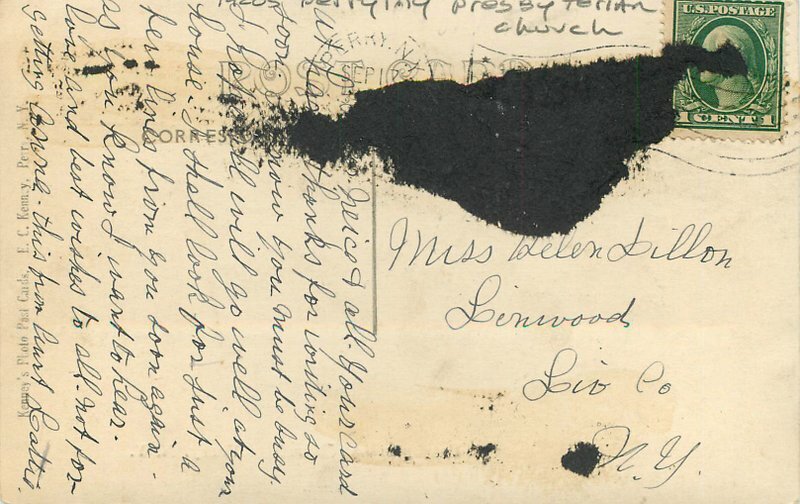 Perrying Presbyterian
church
U.S. POSTAGE
1 CENT 1
PERRY, N.Y.
SEP
POST CARD
CORRES
Miss Helen Dillon
Linwood
Liv Co
N.Y.
Neice & all. Your card
thanks for writing so
soon. know you must be busy
I hope all will go well at your
house. I shall look for just a
few lines from you soon again
as you know I want to hear.
love and best wishes to all. not for
getting this from Aunt
Kenney's Photo Post Cards. E. C. Kenney, Perry, N. Y.